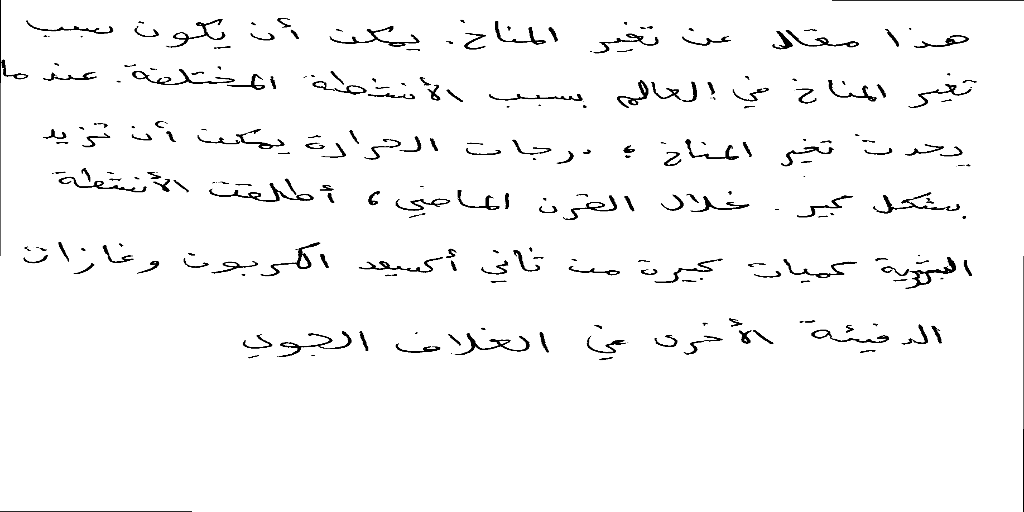 هذا مقال عن تغير المناخ. يمكن أن يكون سبب
تغير المناخ في العالم بسبب الأنشطة المختلفة. عندما
يحدث تغير المناخ ، درجات الحرارة يمكن أن تزيد
بشكل كبير. خلال القرن الماضي ، أطلقت الأنشطة
البشرية كميات كبيرة من ثاني أكسيد الكربون وغازات
الدفيئة الأخرى في الغلاف الجوي